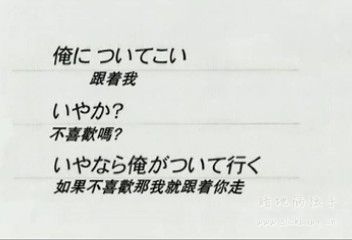 俺に ついてこい
跟着我
いやか?
不喜歡嗎?
いやなら俺がついて行く
如果不喜歡那我就跟着你走